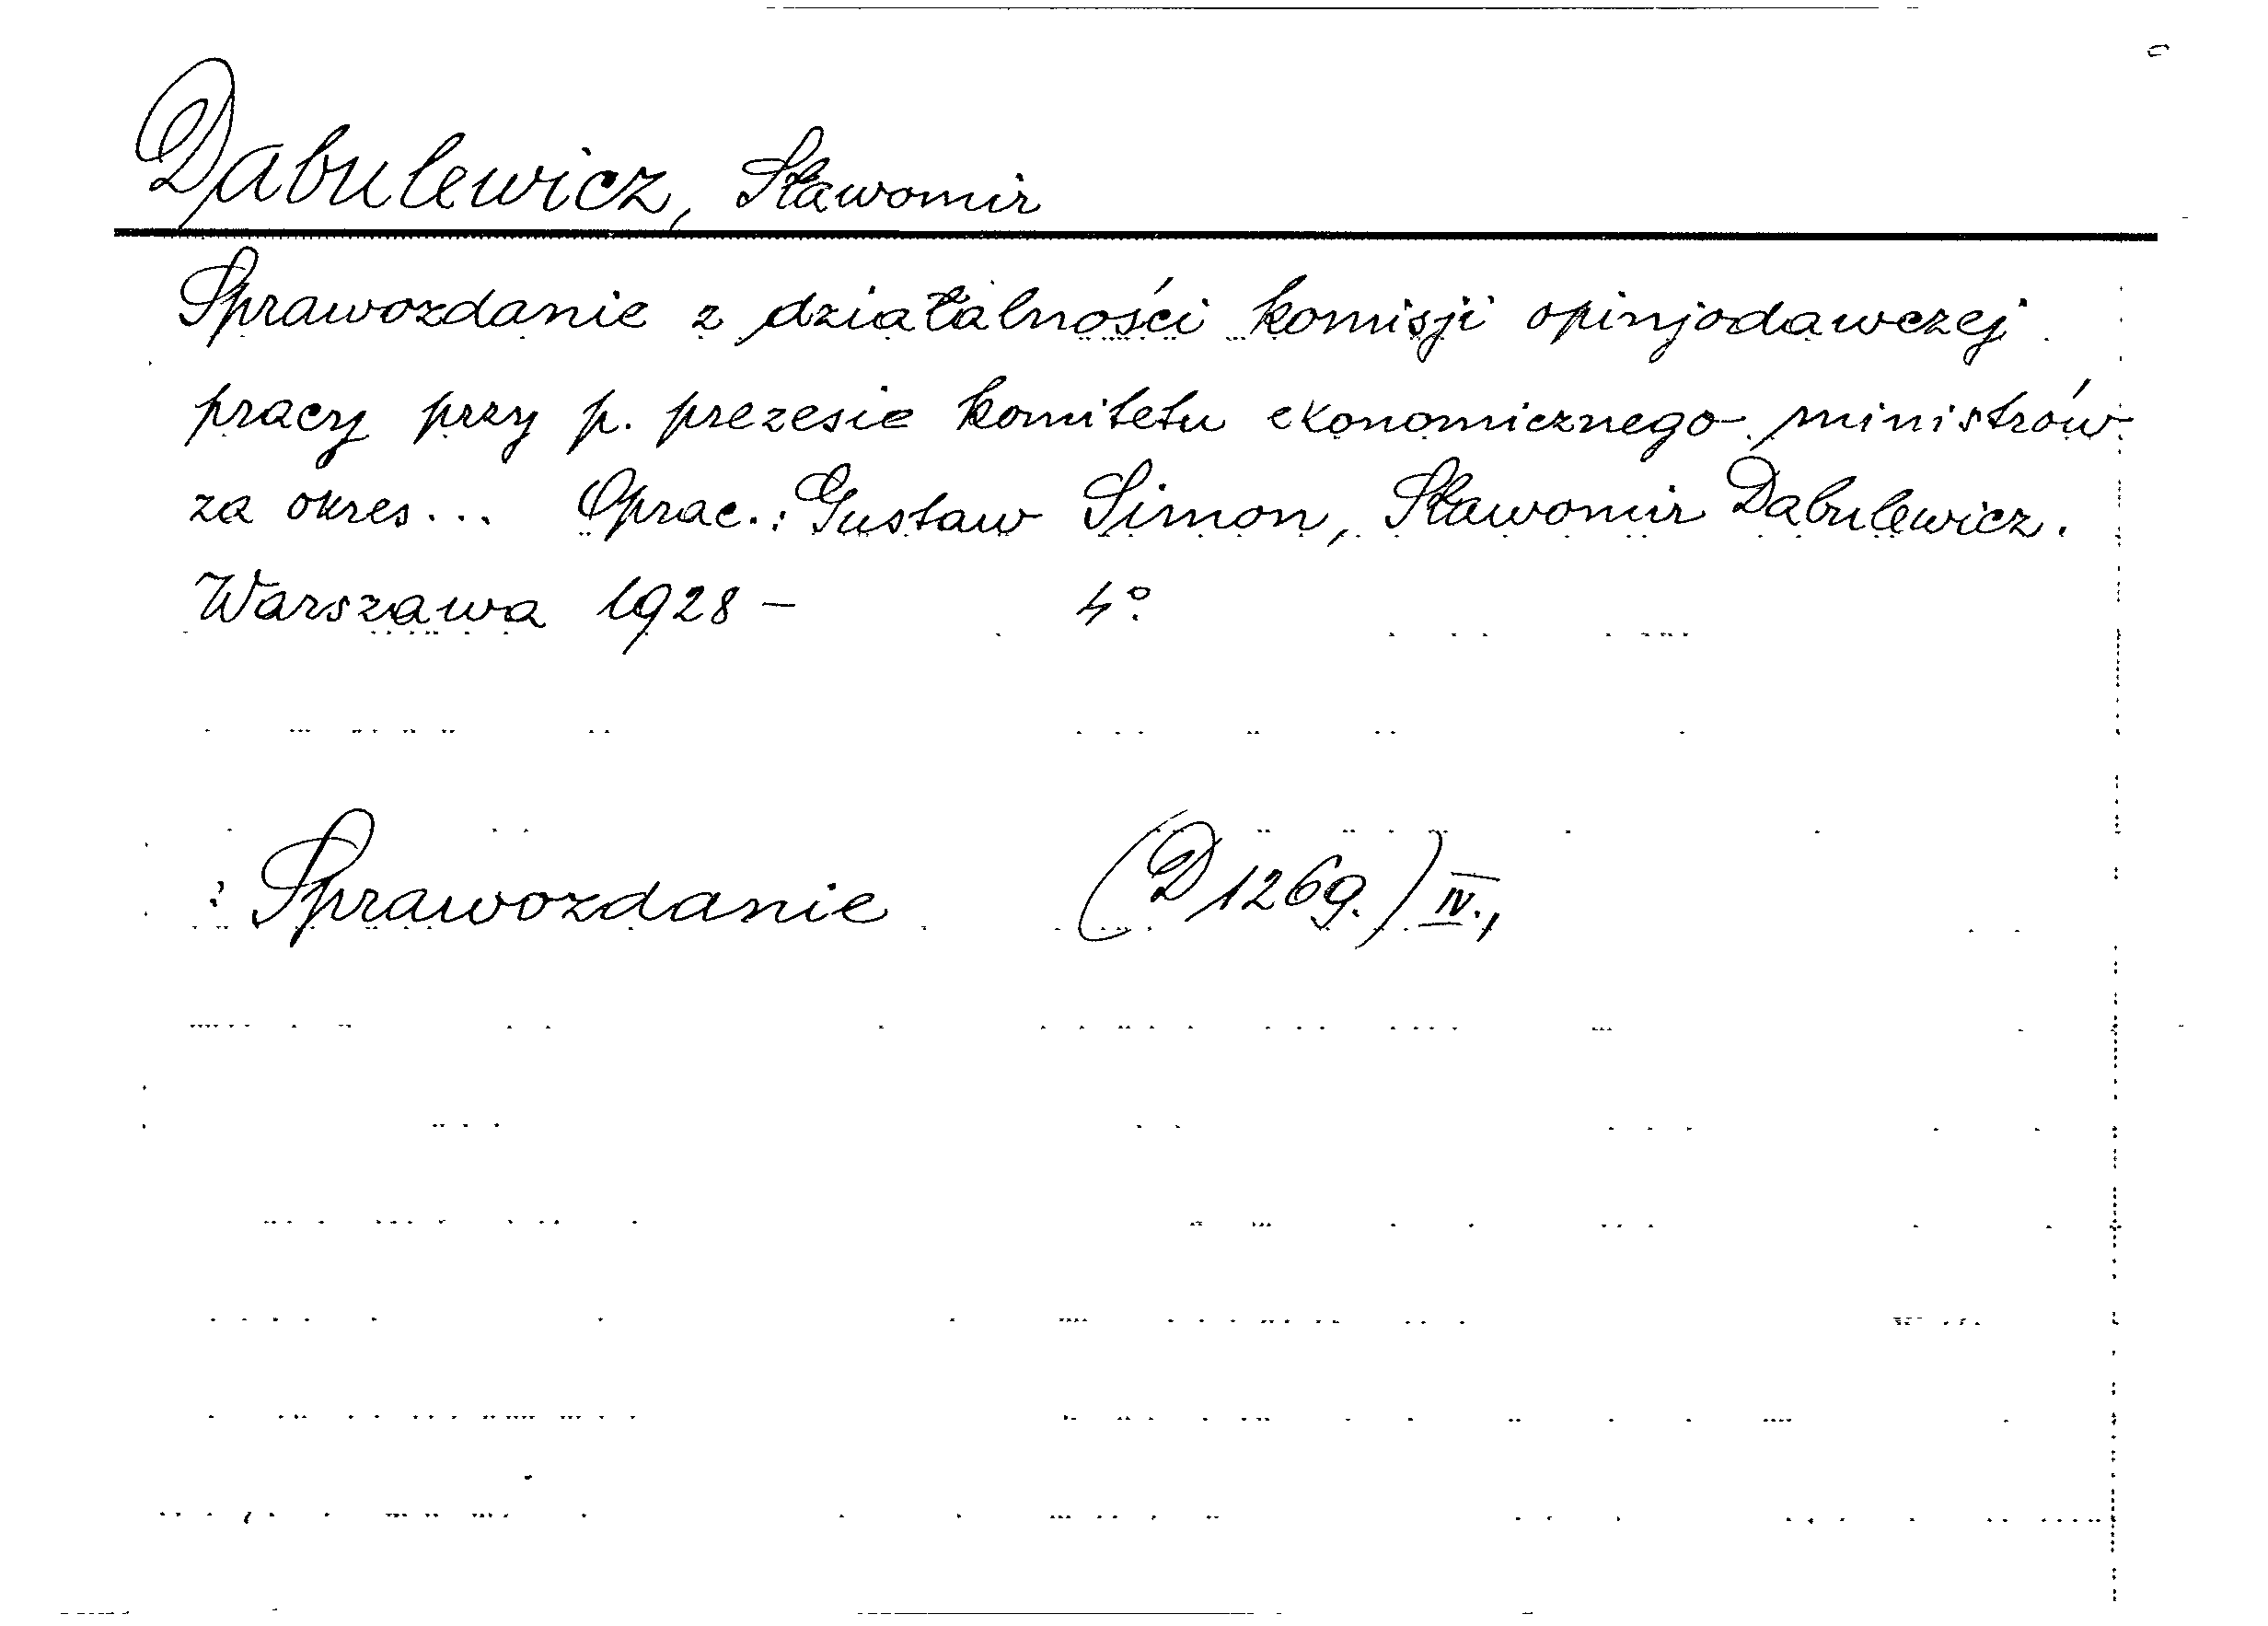 Dabulewicz, Sławomir
Sprawozdanie z działalności komisji opinjodawczej
pracy przy p. prezesie komitetu ekonomicznego ministrów
za okres... Oprac.: Gustaw Simon, Sławomir Dabulewicz.
Warszawa 1928 – 4°
: Sprawozdanie (D 1269.) IV.,